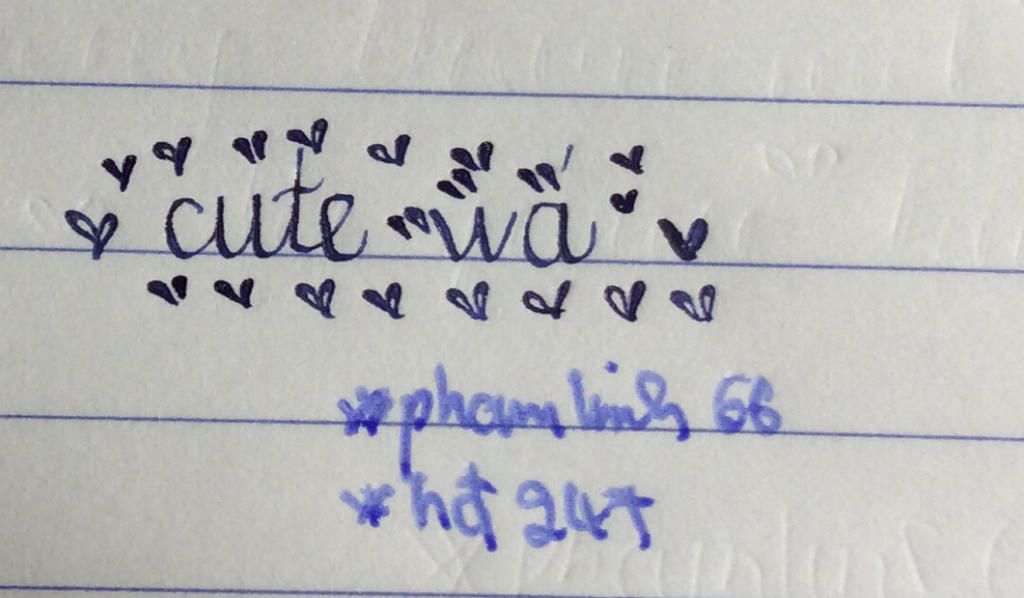 cute wá
*phamlinh 66
*hđ 247